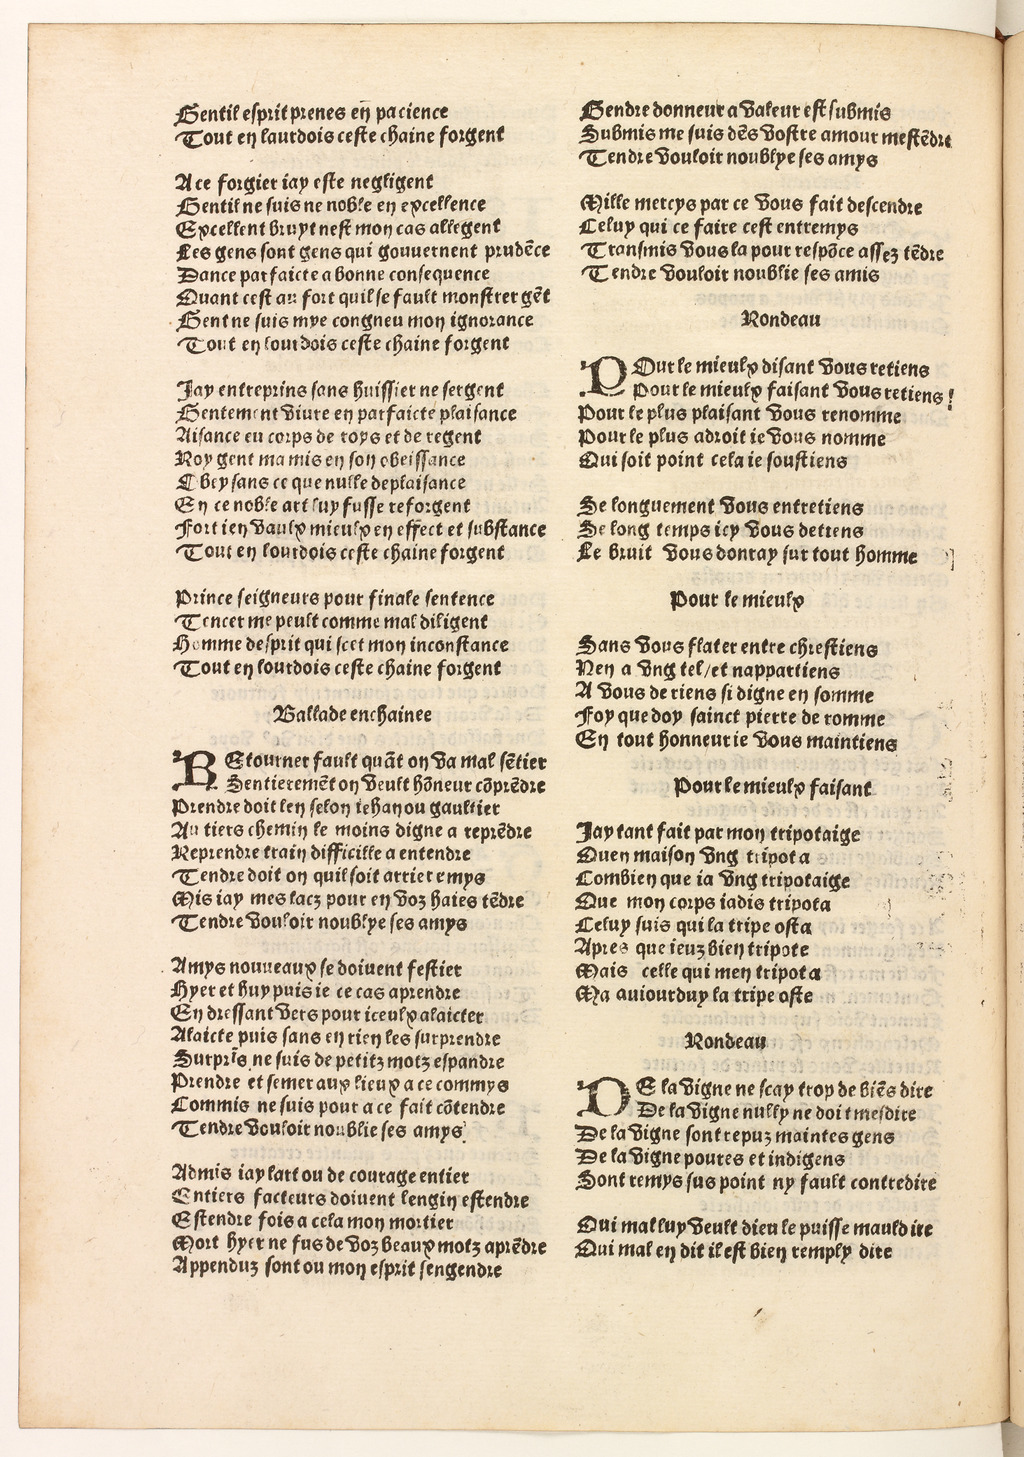 Gentil esprit prenes en pacience
Tout en lourdois ceste chaine forgent
A ce forgier iay este negligent
Gentil ne suis ne noble en excellence
Excellent bruyt nest mon cas allegent
Les gens sont gens qui gouuernent prudēce
Dance parfaicte a bonne consequence
Quant cest au fort quil se fault monstrer gēt
Gent ne suis mye congneu mon ignorance
Tout en lourdois ceste chaine forgent
Jay entreprins sans huissier ne sergent
Gentement viure en parfaicte plaisance
Aisance eu corps de roys et de regent
Roy gent ma mis en son obeissance
Obey sans ce que nulle deplaisance
En ce noble art luy fusse reforgent
Fort ien vaulx mieulx en effect et substance
Tout en lourdois ceste chaine forgent
Prince seigneurs pour finale sentence
Tencer me peult comme mal diligent
Homme desprit qui scet mon inconstance
Tout en lourdois ceste chaine forgent
Ballade enchainee
REtourner fault quāt on va mal sētier
Sentieremēt on veult hōneur cōprēdre
Prendre doit len selon iehan ou gaultier
Au tiers chemin le moins digne a reprēdre
Reprendre train difficille a entendre
Tendre doit on quil soit arriere mys
Mis iay mes lacz pour en voz haies tēdre
Tendre vouloir noublye ses amys
Amys nouueaux se doiuent festier
Hyer et huy puis ie ce cas aprendre
En dressant vers pour iceulx alaicter
Alaicte puis sans en rien les surprendre
Surpris ne suis de petitz motz espandre
Prendre et semer aux lieux a ce commys
Commis ne suis pour a ce fait cōtendre
Tendre vouloir noublie ses amys
Admis iay lart ou de courage entier
Entiers facteurs doiuent lengin estendre
Estendre fois a cela mon mortier
Mort hyer ne fus de voz beaux motz aprēdre
Appenduz sont ou mon esprit sengendre
Gendre donneur a valeur est submis
Submis me suis dēs vostre amour mestēdre
Tendre vouloir noublye ses amys
Mille mercys par ce vous fait descendre
Celuy qui ce faire cest entremys
Transmis vous la pour respōce assez tēdre
Tendre vouloir noublie ses amis
Rondeau
POur le mieulx disant vous retiens
Pour le mieulx faisant vous retiens
Pour le plus plaisant vous renomme
Pour le plus adroit ie vous nomme
Qui soit point cela ie soustiens
Se longuement vous entretiens
Se long temps icy vous detiens
Le bruit vous donray sur tout homme
Pour le mieulx
Sans vous flater entre chrestiens
Nen a vng tel/et nappartiens
A vous de riens si digne en somme
Foy que doy sainct pierre de romme
En tout honneur ie vous maintiens
Pour le mieulx faisant
Jay tant fait par mon tripotaige
Quen maison vng tripota
Combien que ia vng tripotaige
Que mon corps iadis tripota
Celuy suis qui la tripe osta
Apres que ieuz bien tripote
Mais celle qui men tripota
Ma auiourduy la tripe oste
Rondeau
DE la vigne ne scay trop de biēs dire
De la vigne nully ne doit mesdire
De la vigne sont repuz maintes gens
De la vigne poures et indigens
Sont remys sus point ny fault contredire
Qui mal luy veult dieu le puisse mauldire
Qui mal en dit il est bien remply dire